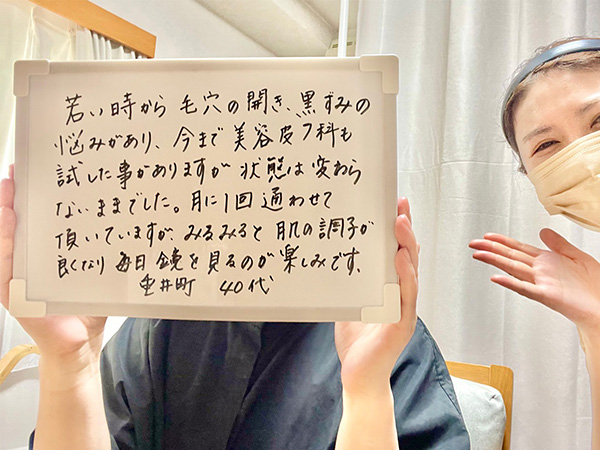 若い時から毛穴の開き、黒ずみの
悩みがあり、今まで美容皮フ科も
試した事がありますが状態は変わら
ないままでした。月に1回通わせて
頂いていますが、みるみると肌の調子が
良くなり毎日鏡を見るのが楽しみです、
垂井町 40代